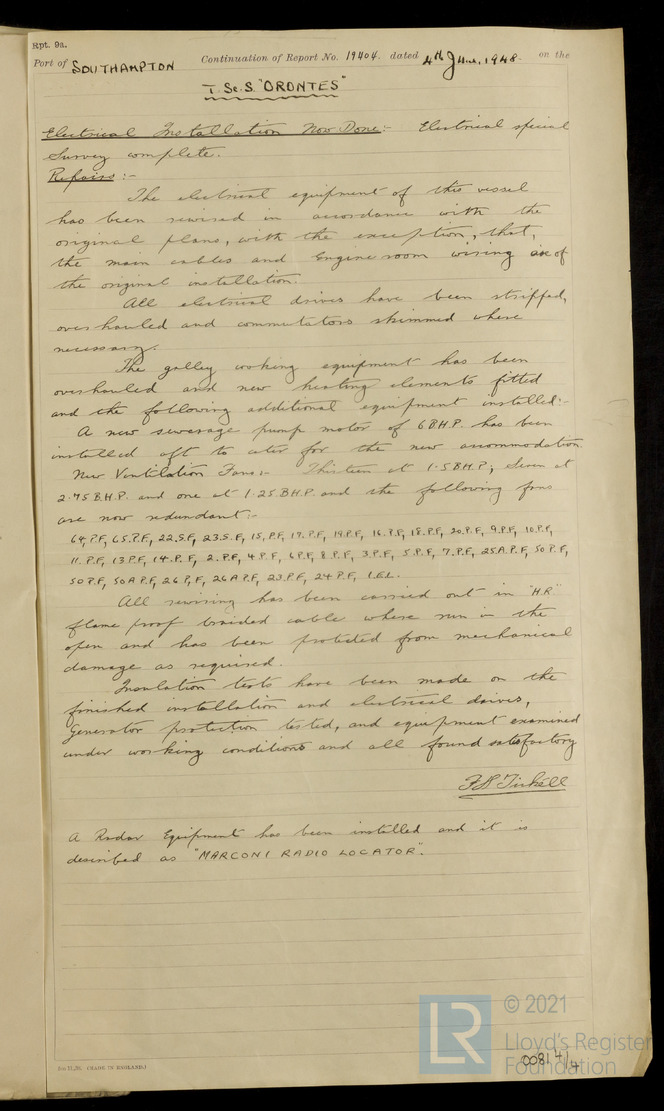 Rpt. 9a.
Port of SOUTHAMPTON Continuation of Report No. 19404. dated 4th June, 1948. on the
T. Sc. S. "ORONTES"
Electrical Installation Now Done:- Electrical special
Survey complete.
Repairs:-
The electrical equipment of this vessel
has been rewired in accordance with the
original plans, with the exception, that,
the main cables and Engine room wiring are of
the original installation.
All electrical drives have been stripped,
overhauled and commutators skimmed where
necessary.
The galley cooking equipment has been
overhauled and new heating elements fitted
and the following additional equipment installed:-
A new sewerage pump motor of 6 B.H.P. has been
installed aft to cater for the new accommodation.
New Ventilation Fans:- Thirteen at 1.5 B.H.P., Seven at
2.75 B.H.P. and one at 1.25 B.H.P. and the following fans
are now redundant:-
64.P.F, 65.P.F, 22.S.F, 23.S.F, 15.P.F, 17.P.F, 19.P.F, 16.P.F, 18.P.F, 20.P.F, 9.P.F, 10.P.F,
11.P.F, 13.P.F, 14.P.F, 2.P.F, 4.P.F, 6.P.F, 8.P.F, 3.P.F, 5.P.F, 7.P.F, 25A.P.F, 50.P.F,
50.P.F, 50A.P.F, 26.P.F, 26A.P.F, 23.P.F, 24.P.F, 1.E.L.
All rewiring has been carried out in "H.R"
flame proof braided cable where run in the
open and has been protected from mechanical
damage as required.
Insulation tests have been made on the
finished installation and electrical drives,
Generator protection tested, and equipment examined
under working conditions and all found satisfactory
A Radar Equipment has been installed and it is
described as "MARCONI RADIO LOCATOR".
(MADE IN ENGLAND.)
LR
© 2021
Lloyd's Register
Foundation
00814/4